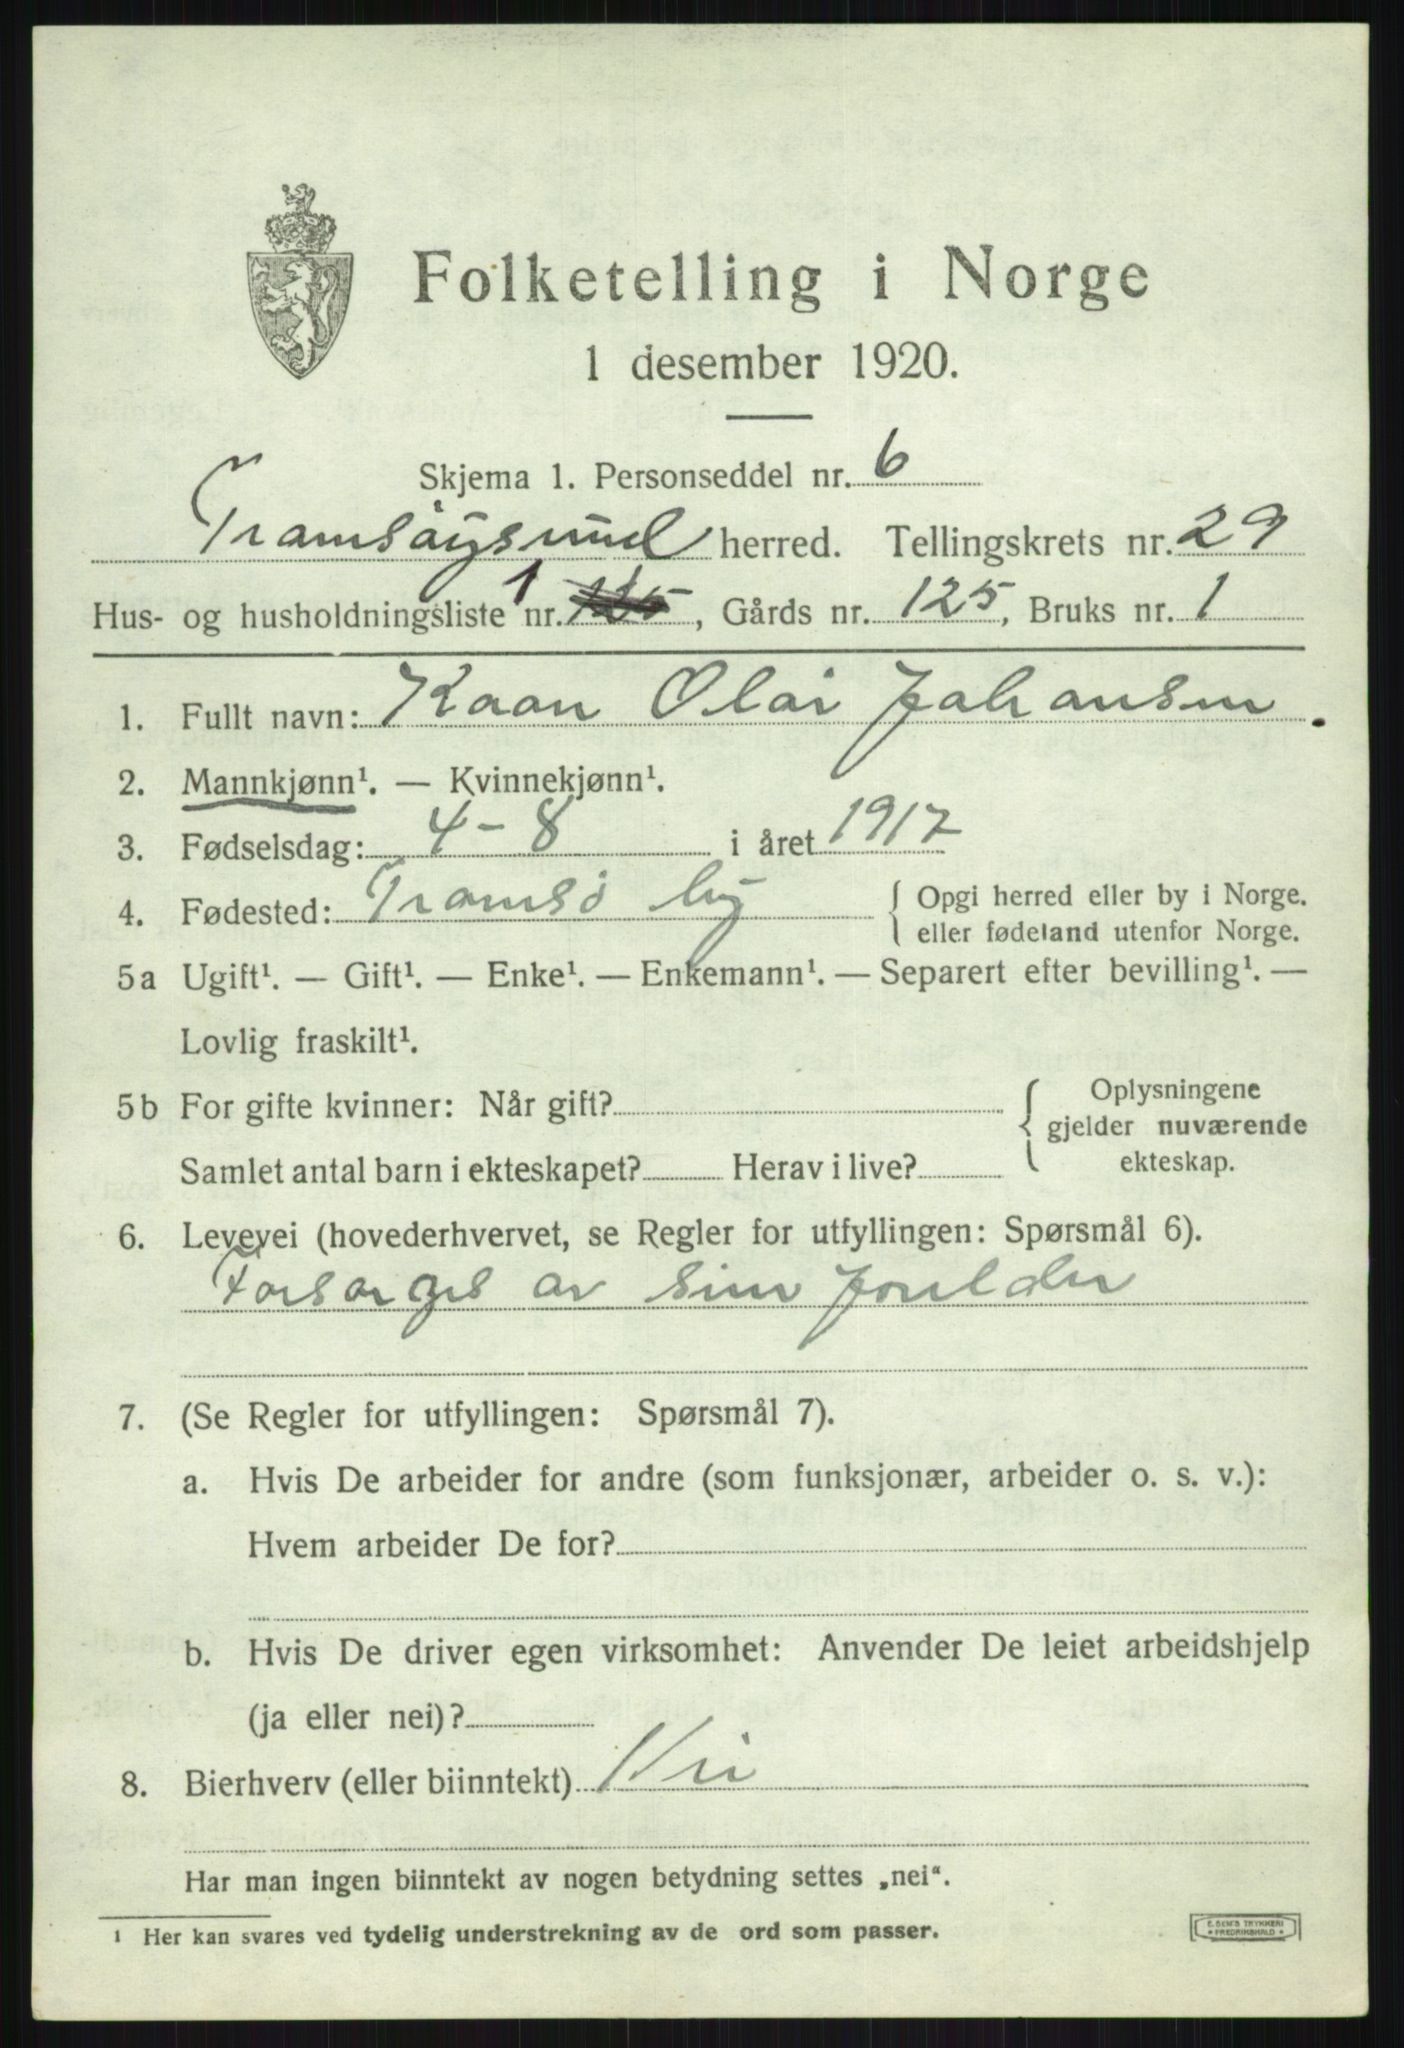 Folketelling i Norge
1 desember 1920.
Skjema 1. Personseddel nr. 6
Tromsøysund herred. Tellingskrets nr. 29
Hus- og husholdningsliste nr. 1 125, Gårds nr. 125, Bruks nr. 1
1. Fullt navn: Kaan Olai Johansen
2. Mannkjønn¹. — Kvinnekjønn¹.
3. Fødselsdag: 4-8 i året 1917
4. Fødested: Tromsø by { Opgi herred eller by i Norge.
eller fødeland utenfor Norge.
5a Ugift¹. — Gift¹. — Enke¹. — Enkemann¹. — Separert efter bevilling¹. —
Lovlig fraskilt¹.
5b For gifte kvinner: Når gift? { Oplysningene
gjelder nuværende
ekteskap.
Samlet antal barn i ekteskapet? Herav i live?
6. Levevei (hovederhvervet, se Regler for utfyllingen: Spørsmål 6).
Forsørges av sine forelder
7. (Se Regler for utfyllingen: Spørsmål 7).
a. Hvis De arbeider for andre (som funksjonær, arbeider o. s. v.):
Hvem arbeider De for?
b. Hvis De driver egen virksomhet: Anvender De leiet arbeidshjelp
(ja eller nei)?
8. Bierhverv (eller biinntekt) Nei
Har man ingen biinntekt av nogen betydning settes „nei“.
¹ Her kan svares ved tydelig understrekning av de ord som passer.
E. SEM'S TRYKKERI
* FREDRIKSHALD *